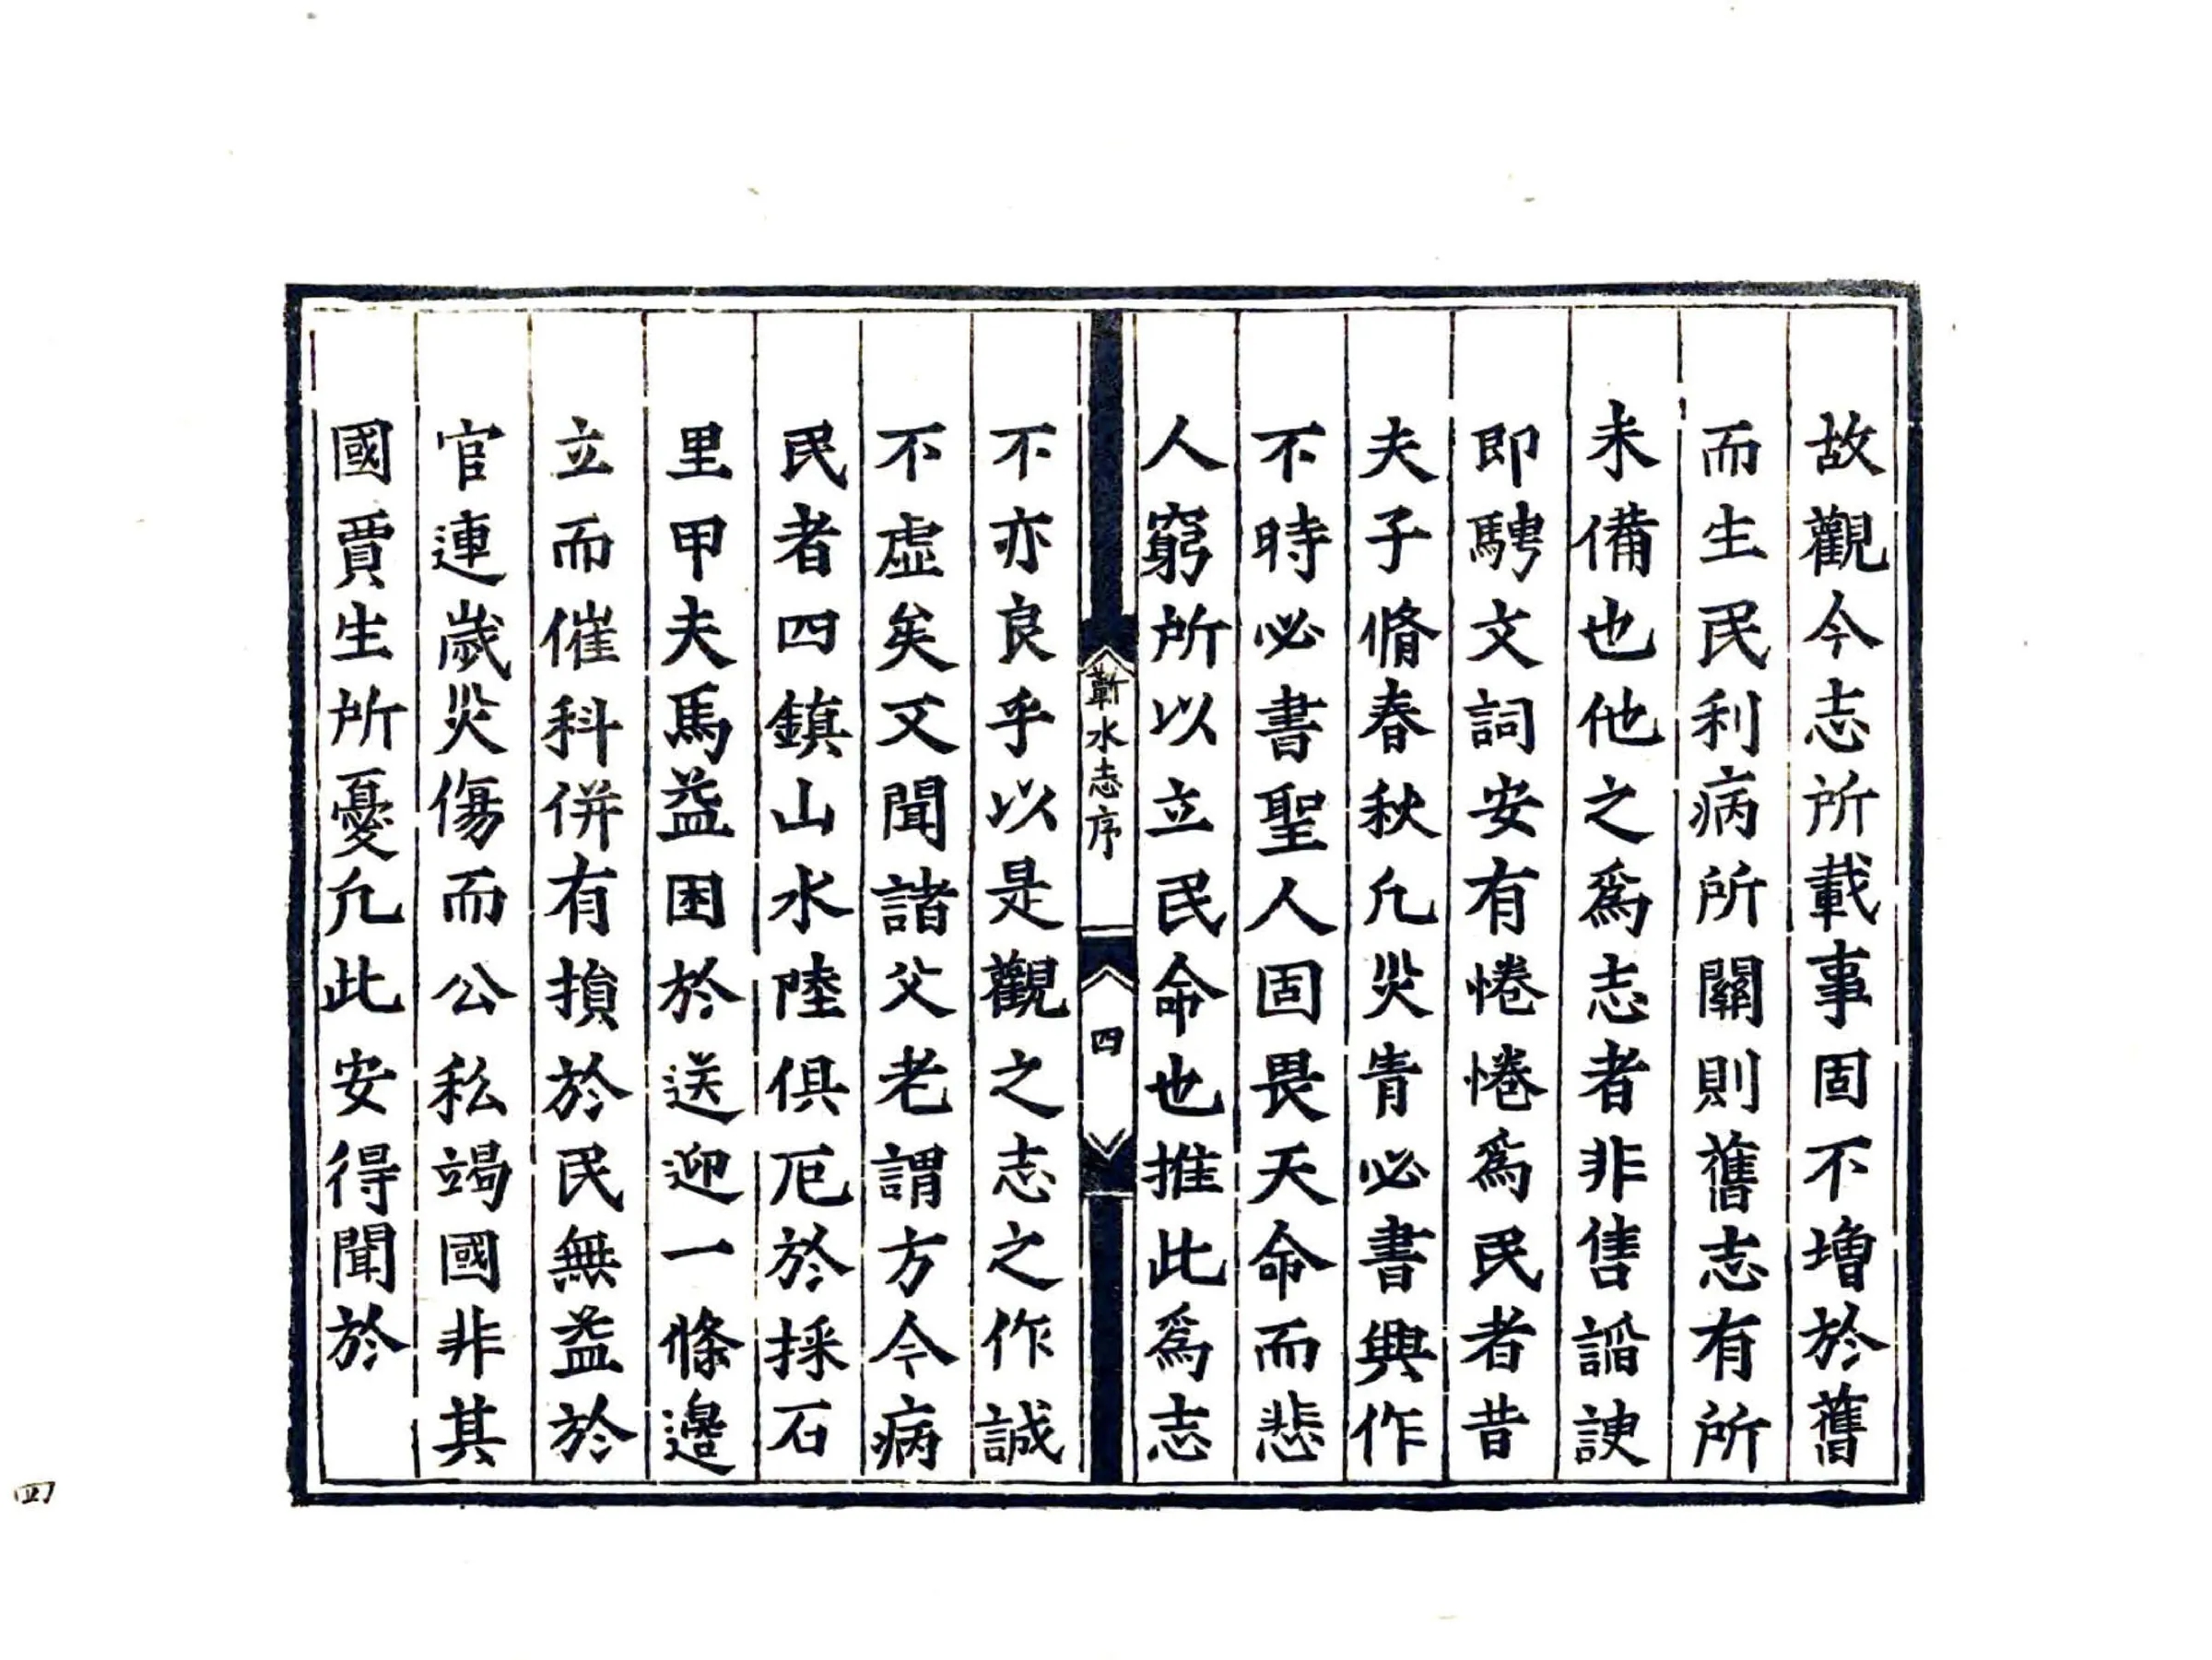 故觀今志所載事固不增於舊
而生民利病所關則舊志有所
未備也他之爲志者非售謟諛
即騁文詞安有惓惓爲民者昔
夫子脩春秋凢災眚必書興作
不時必書聖人固畏天命而悲
人窮所以立民命也推此爲志
蘄水志序
四
不亦良乎以是觀之志之作誠
不虛矣又聞諸父老謂方今病
民者四鎮山水陸俱厄於採石
里甲夫馬益困於送迎一條邊
立而催科併有損於民無益於
官連歲災傷而公私竭國非其
國賈生所憂凢此安得聞於
四